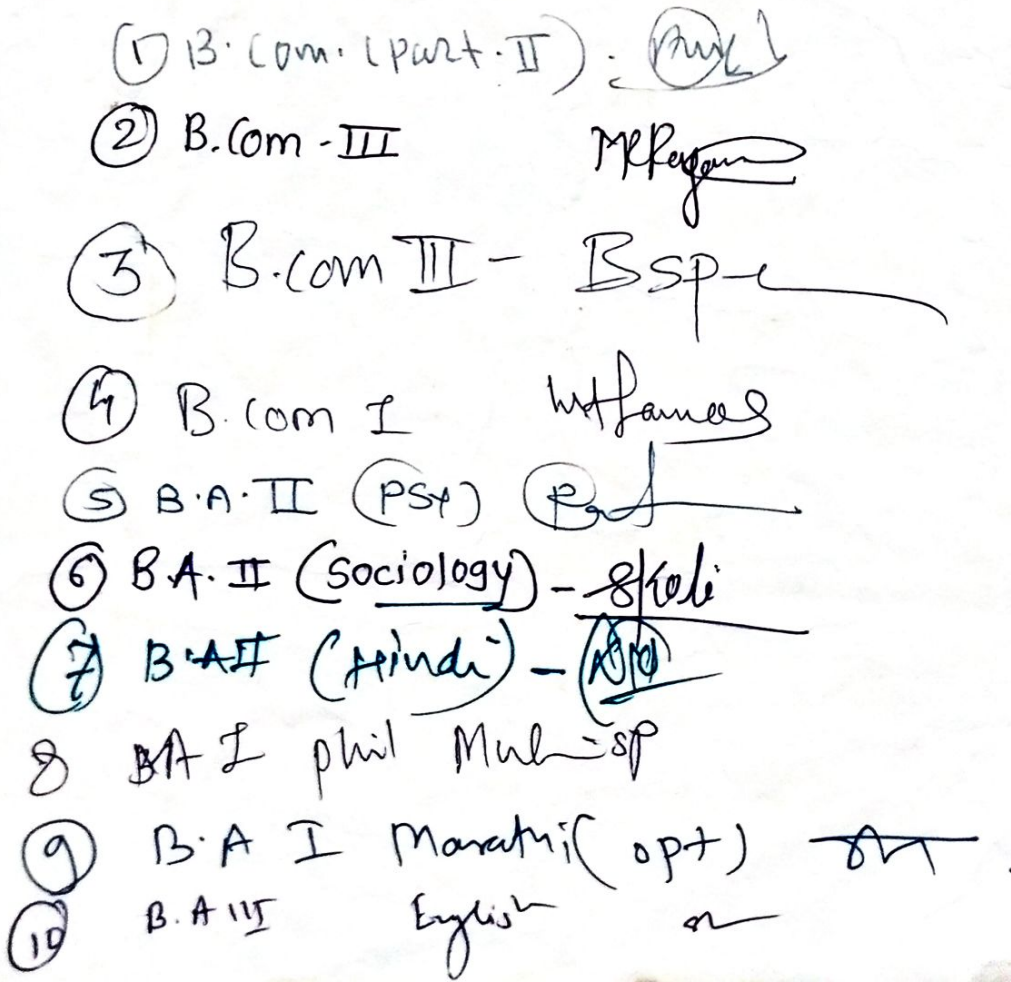 ① B.Com. (Part. II).
② B.Com - III
③ B.com III - BSP
④ B.com I
⑤ B.A. II (PSY)
⑥ B.A. II (Sociology) - Skoli
⑦ B.A II (Hindi) -
8 BA I phil
⑨ B.A I Marathi (opt)
⑩ B.A III English